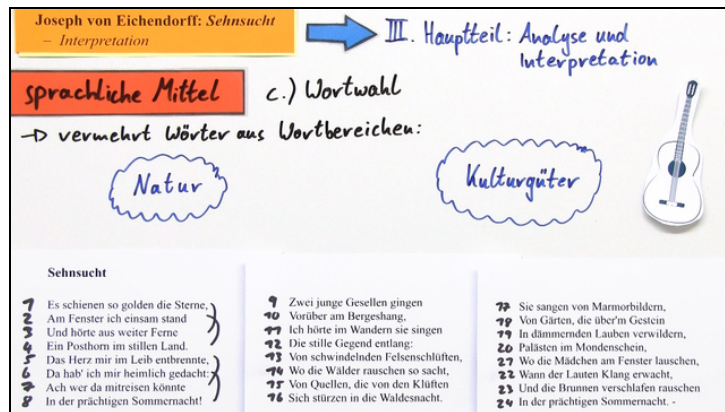 Joseph von Eichendorff: Sehnsucht
– Interpretation
III. Hauptteil: Analyse und
Interpretation
sprachliche Mittel
c.) Wortwahl
→ vermehrt Wörter aus Wortbereichen:
Natur
Kulturgüter
Sehnsucht
1 Es schienen so golden die Sterne,
2 Am Fenster ich einsam stand
3 Und hörte aus weiter Ferne
4 Ein Posthorn im stillen Land.
5 Das Herz mir im Leib entbrennte,
6 Da hab' ich mir heimlich gedacht:
7 Ach wer da mitreisen könnte
8 In der prächtigen Sommernacht!
9 Zwei junge Gesellen gingen
10 Vorüber am Bergeshang,
11 Ich hörte im Wandern sie singen
12 Die stille Gegend entlang:
13 Von schwindelnden Felsenschlüften,
14 Wo die Wälder rauschen so sacht,
15 Von Quellen, die von den Klüften
16 Sich stürzen in die Waldesnacht.
17 Sie sangen von Marmorbildern,
18 Von Gärten, die über'm Gestein
19 In dämmernden Lauben verwildern,
20 Palästen im Mondenschein,
21 Wo die Mädchen am Fenster lauschen,
22 Wann der Lauten Klang erwacht,
23 Und die Brunnen verschlafen rauschen
24 In der prächtigen Sommernacht. -